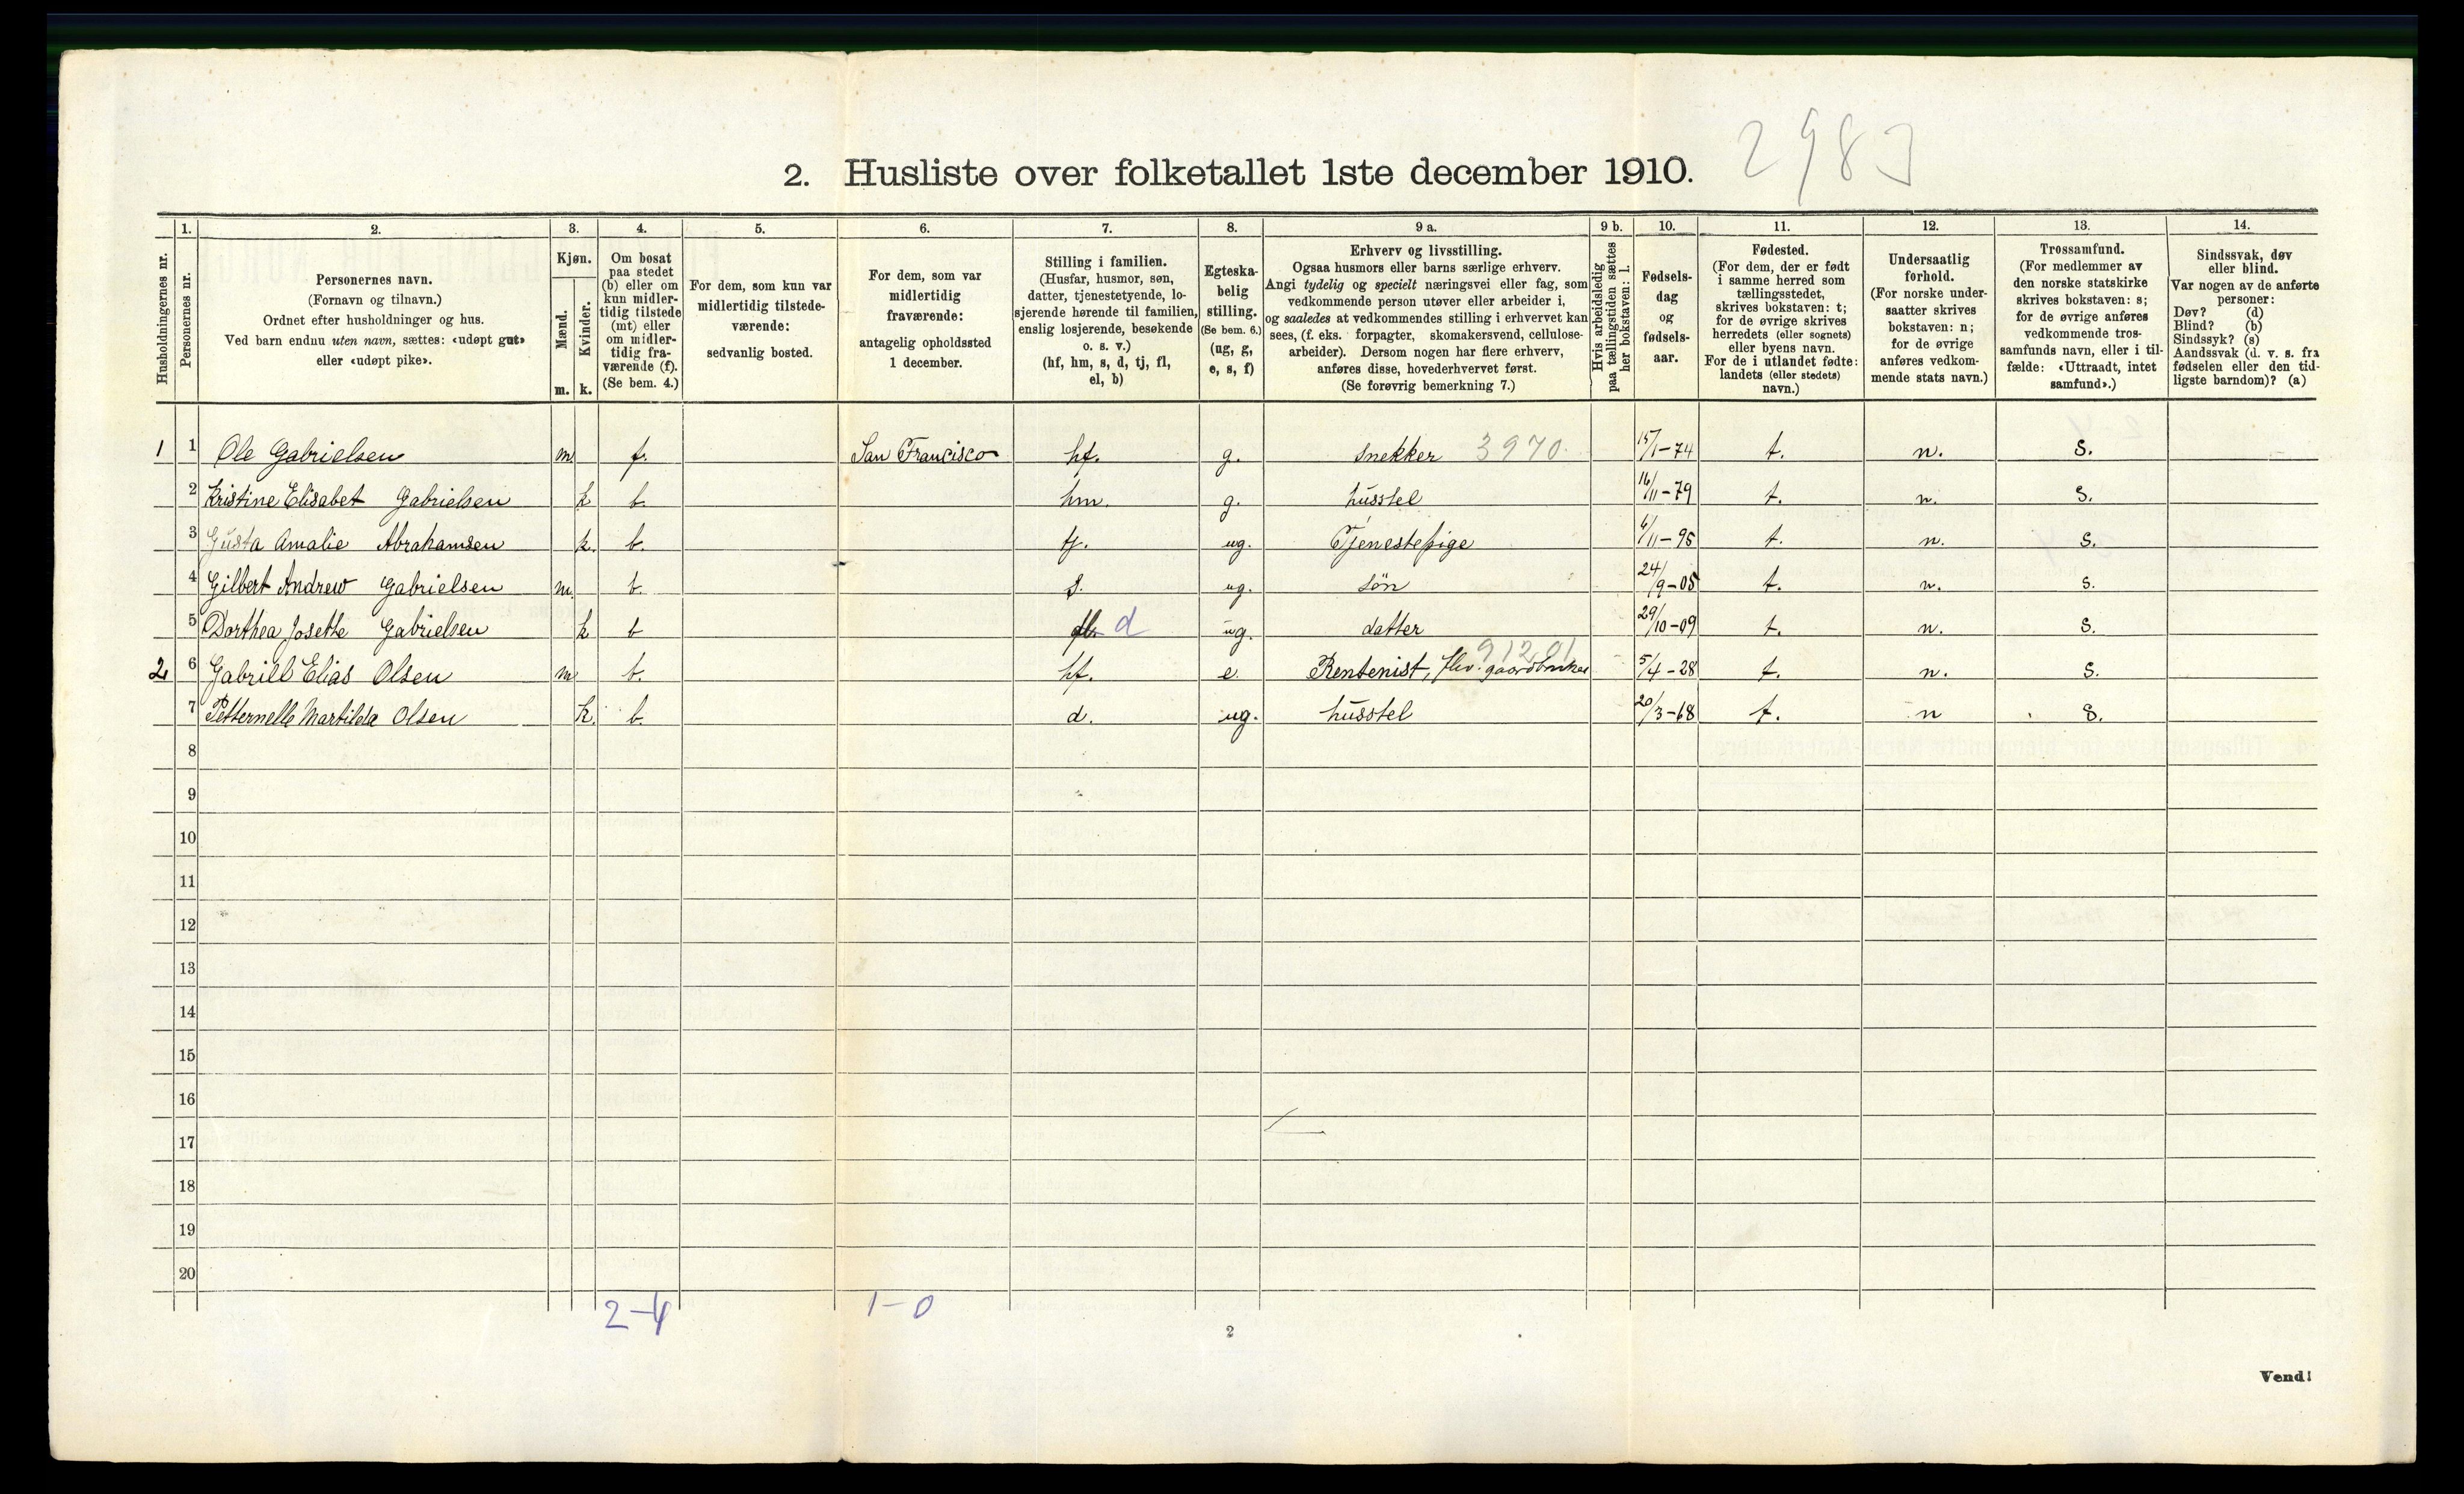 2983
2. Husliste over folketallet 1ste december 1910.
Husholdningernes nr.
1. Personernes nr.
2. Personernes navn.
(Fornavn og tilnavn.)
Ordnet efter husholdninger og hus.
Ved barn endnu uten navn, sættes: «udøpt gut»
eller «udøpt pike».
3. Kjøn.
Mænd. m.
Kvinder. k.
4. Om bosat
paa stedet
(b) eller om
kun midler-
tidig tilstede
(mt) eller
om midler-
tidig fra-
værende (f).
(Se bem. 4.)
5. For dem, som kun var
midlertidig tilstede-
værende:
sedvanlig bosted.
6. For dem, som var
midlertidig
fraværende:
antagelig opholdssted
1 december.
7. Stilling i familien.
(Husfar, husmor, søn,
datter, tjenestetyende, lo-
sjerende hørende til familien,
enslig losjerende, besøkende
o. s. v.)
(hf, hm, s, d, tj, fl,
el, b)
8. Egteska-
belig
stilling.
(Se bem. 6.)
(ug, g,
e, s, f)
9 a. Erhverv og livsstilling.
Ogsaa husmors eller barns særlige erhverv.
Angi tydelig og specielt næringsvei eller fag, som
vedkommende person utøver eller arbeider i,
og saaledes at vedkommendes stilling i erhvervet kan
sees, (f. eks. forpagter, skomakersvend, cellulose-
arbeider). Dersom nogen har flere erhverv,
anføres disse, hovederhvervet først.
(Se forøvrig bemerkning 7.)
9 b. Hvis arbeidsledig
paa tællingstiden sættes
her bokstaven: l.
10. Fødsels-
dag
og
fødsels-
aar.
11. Fødested.
(For dem, der er født
i samme herred som
tællingsstedet,
skrives bokstaven: t;
for de øvrige skrives
herredets (eller sognets)
eller byens navn.
For de i utlandet fødte:
landets (eller stedets)
navn.)
12. Undersaatlig
forhold.
(For norske under-
saatter skrives
bokstaven: n;
for de øvrige
anføres vedkom-
mende stats navn.)
13. Trossamfund.
(For medlemmer av
den norske statskirke
skrives bokstaven: s;
for de øvrige anføres
vedkommende tros-
samfunds navn, eller i til-
fælde: «Uttraadt, intet
samfund».)
14. Sindssvak, døv
eller blind.
Var nogen av de anførte
personer:
Døv? (d)
Blind? (b)
Sindssyk? (s)
Aandssvak (d. v. s. fra
fødselen eller den tid-
ligste barndom)? (a)
1 1 Ole Gabrielsen m. f. San Francisco hf. g. Snekker 3970. 15/1-74 t. n. S.
2 Kristine Elisabet Gabrielsen k b. hm. g. husstel 16/11-79 t. n. S.
3 Gusta Amalie Abrahamsen k. b. tj. ug. Tjenestepige 6/11-95 t. n. S.
4 Gilbert Andrew Gabrielsen m. b. s. ug. søn 24/9-05 t. n. s.
5 Dorthea Josette Gabrielsen k b d ug. datter 29/10-09 t. n. s.
2 6 Gabriell Elias Olsen m b. hf. e. Rentenist, 91201 5/4-28 t. n. s.
7 Petternelle Martilde Olsen k. b. d. ug. husstel 20/3-68 t. n s.
8
9
10
11
12
13
14
15
16
17
18
19
20
2-4 1-0
2
Vend!